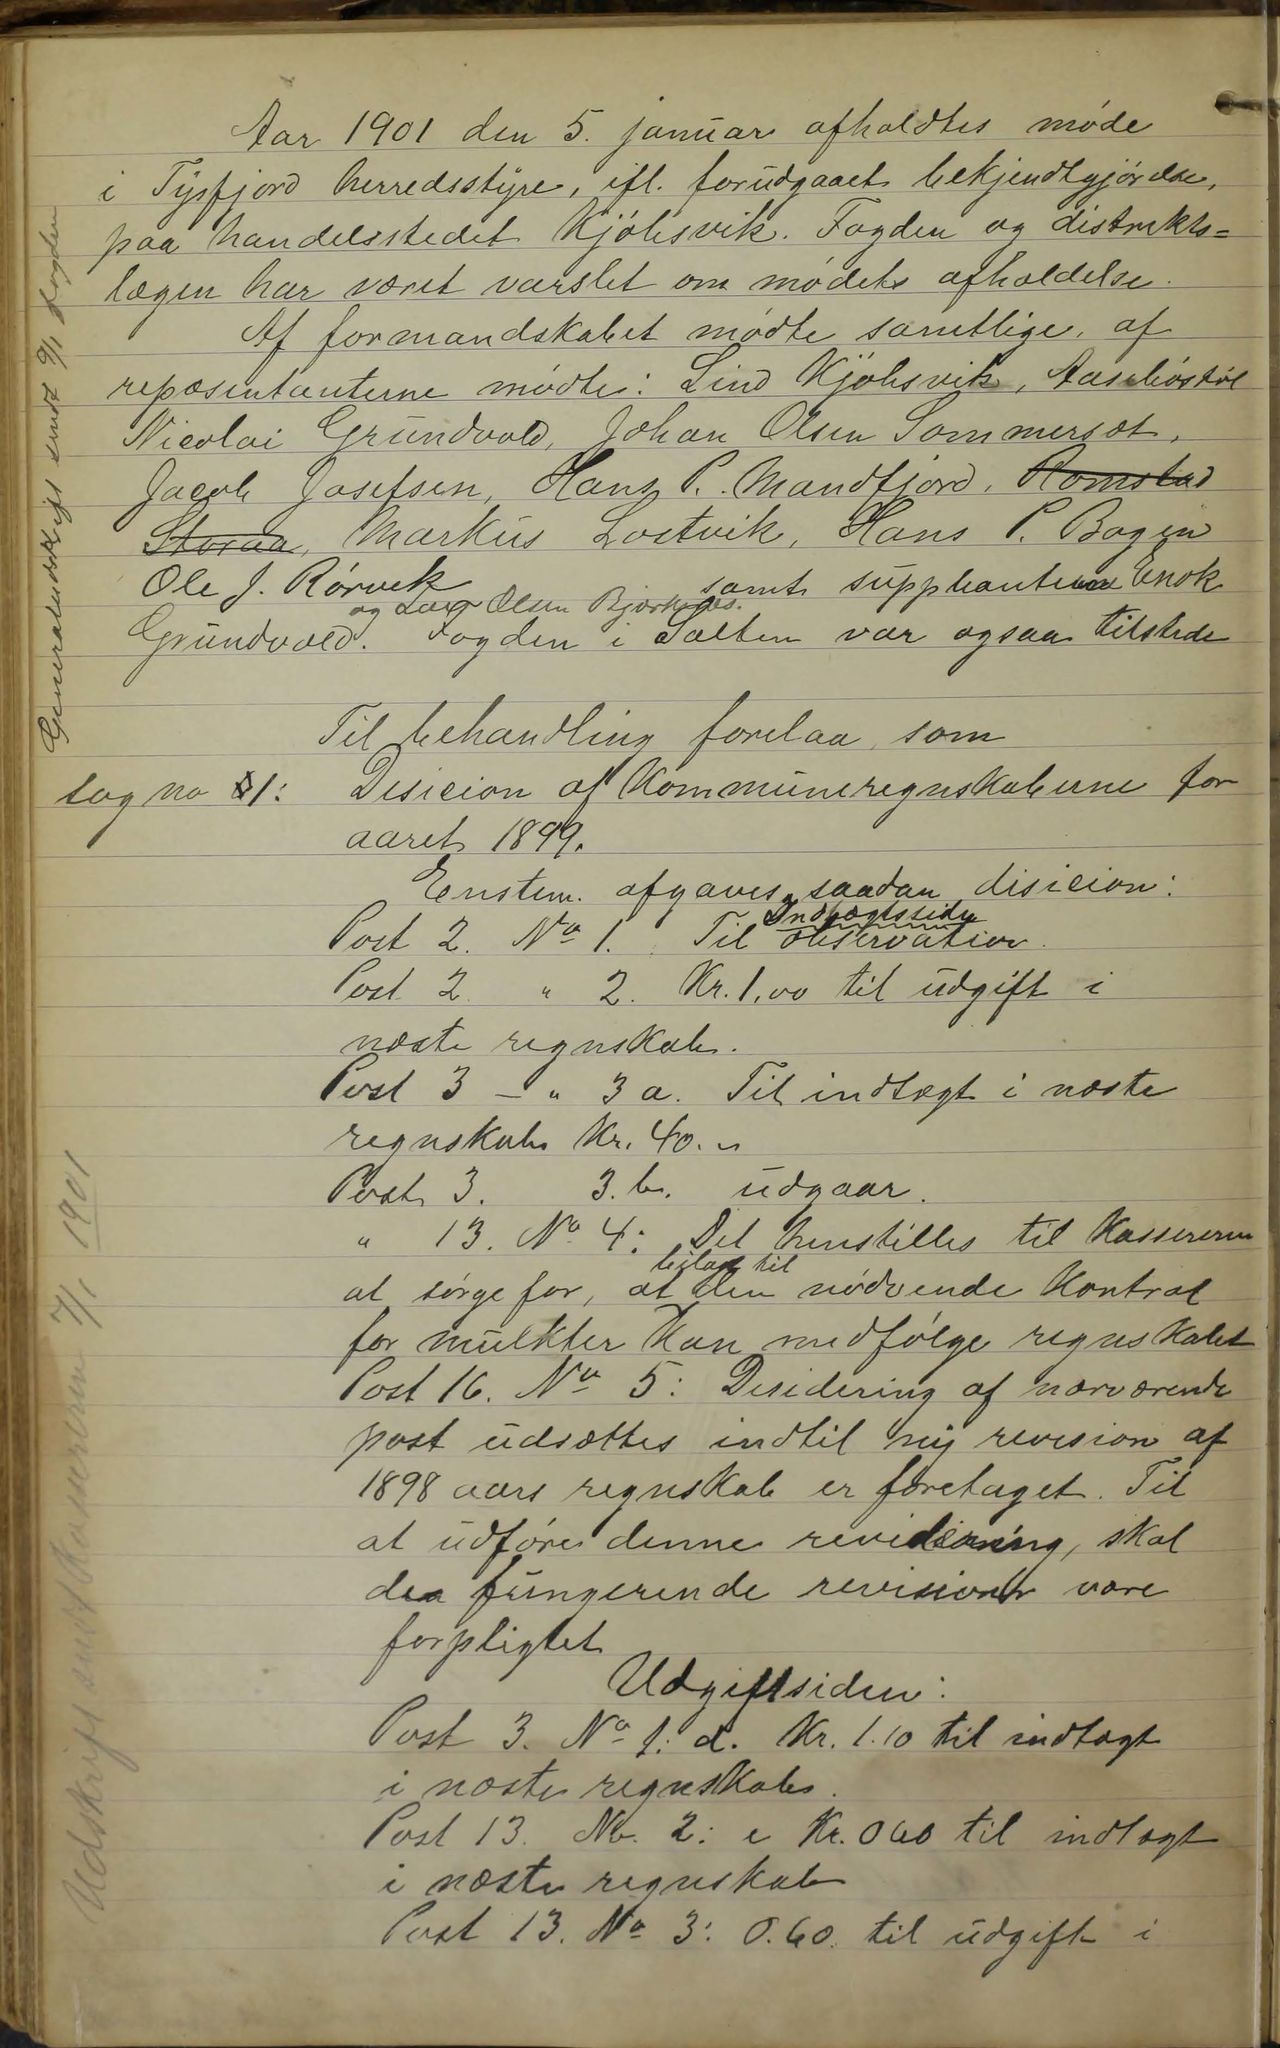 Aar 1901 den 5. januar afholdtes møde
i Tysfjord herredsstyre, ifl. forudgaaet bekjendtgjørelse,
paa handelsstedet Kjøbsvik. Fogden og distrikts=
lægen har været varslet om mødets afholdelse.
Af formandskabet mødte samtlige, af
repæsentanterne mødte: Lind Kjøbsvik,
Nicolai Grundvold, Johan Olsen Sommerset,
Jacob Josefsen, Hans P. Mandfjord, Romstad
Storaa, Markus Løstvik, Hans P. Bogen
Ole J. Rørvik samt suppleanterne Enok
og Lars Olsen Bjørknes.
Grundvold. Fogden i Salten var ogsaa tilstede
Til behandling forelaa, som
sag no 1: Desicion af Kommuneregnskaberne for
aaret 1899.
Enstem. afgaves saadan disicion:
Indtægtssiden
Post 2. No 1. Til observation.
Post 2 " 2. Kr. 1,00 til udgift i
næste regnskab.
Post 3 – " 3 a. Til indtægt i næste
regnskab Kr. 40. "
Post 3. 3. b. udgaar.
" 13. No 4: Det henstilles til Kassereren
bilag til
at sørge for, at den nødvende Kontrol
for mulkter kan medfølge regnskabet
Post 16. No 5: Desidering af nærværende
post udsættes indtil ny revision af
1898 aars regnskab er foretaget. Til
at udføre denne revidering, skal
den fungerende revisionr være
forpligtet
Udgiftsiden:
Post 3. No 1: d. Kr. 1.10 til indtægt
i næste regnskab.
Post 13. No. 2: e Kr. 0 60 til indtægt
i næste regnskab
Post 13. No 3: 0.60. til udgift i
Generaludskrift sendt 9/1 fogden
Udskrift sendt Kassereren 7/1 1901